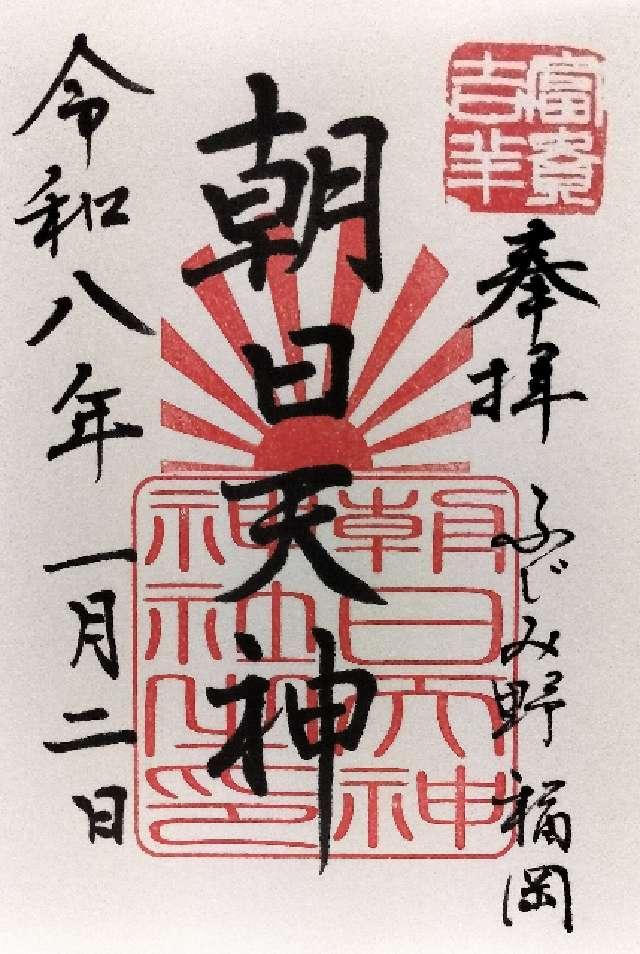 富貴
吉羊
奉拝
ふじみ野 福岡
朝日天神
朝日天神
神社
之印
令和八年一月二日